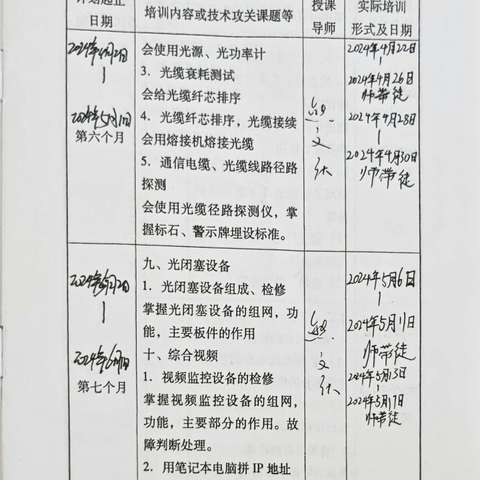 计划起止
日期
培训内容或技术攻关课题等
授课
导师
实际培训
形式及日期
第六个月
会使用光源、光功率计
3．光缆衰耗测试
会给光缆纤芯排序
4．光缆纤芯排序，光缆接续
会用熔接机熔接光缆
5．通信电缆、光缆线路径路
探测
会使用光缆径路探测仪，掌
握标石、警示牌埋设标准。
2024年4月22日
2024年4月26日
师带徒
2024年4月28日
2024年4月30日
师带徒
第七个月
九、光闭塞设备
1．光闭塞设备组成、检修
掌握光闭塞设备的组网，功
能，主要板件的作用
十、综合视频
1．视频监控设备的检修
掌握视频监控设备的组网，
功能，主要部分的作用。故
障判断处理。
2．用笔记本电脑拼 IP 地址
2024年5月6日
2024年5月11日
师带徒
2024年5月13日
2024年5月17日
师带徒